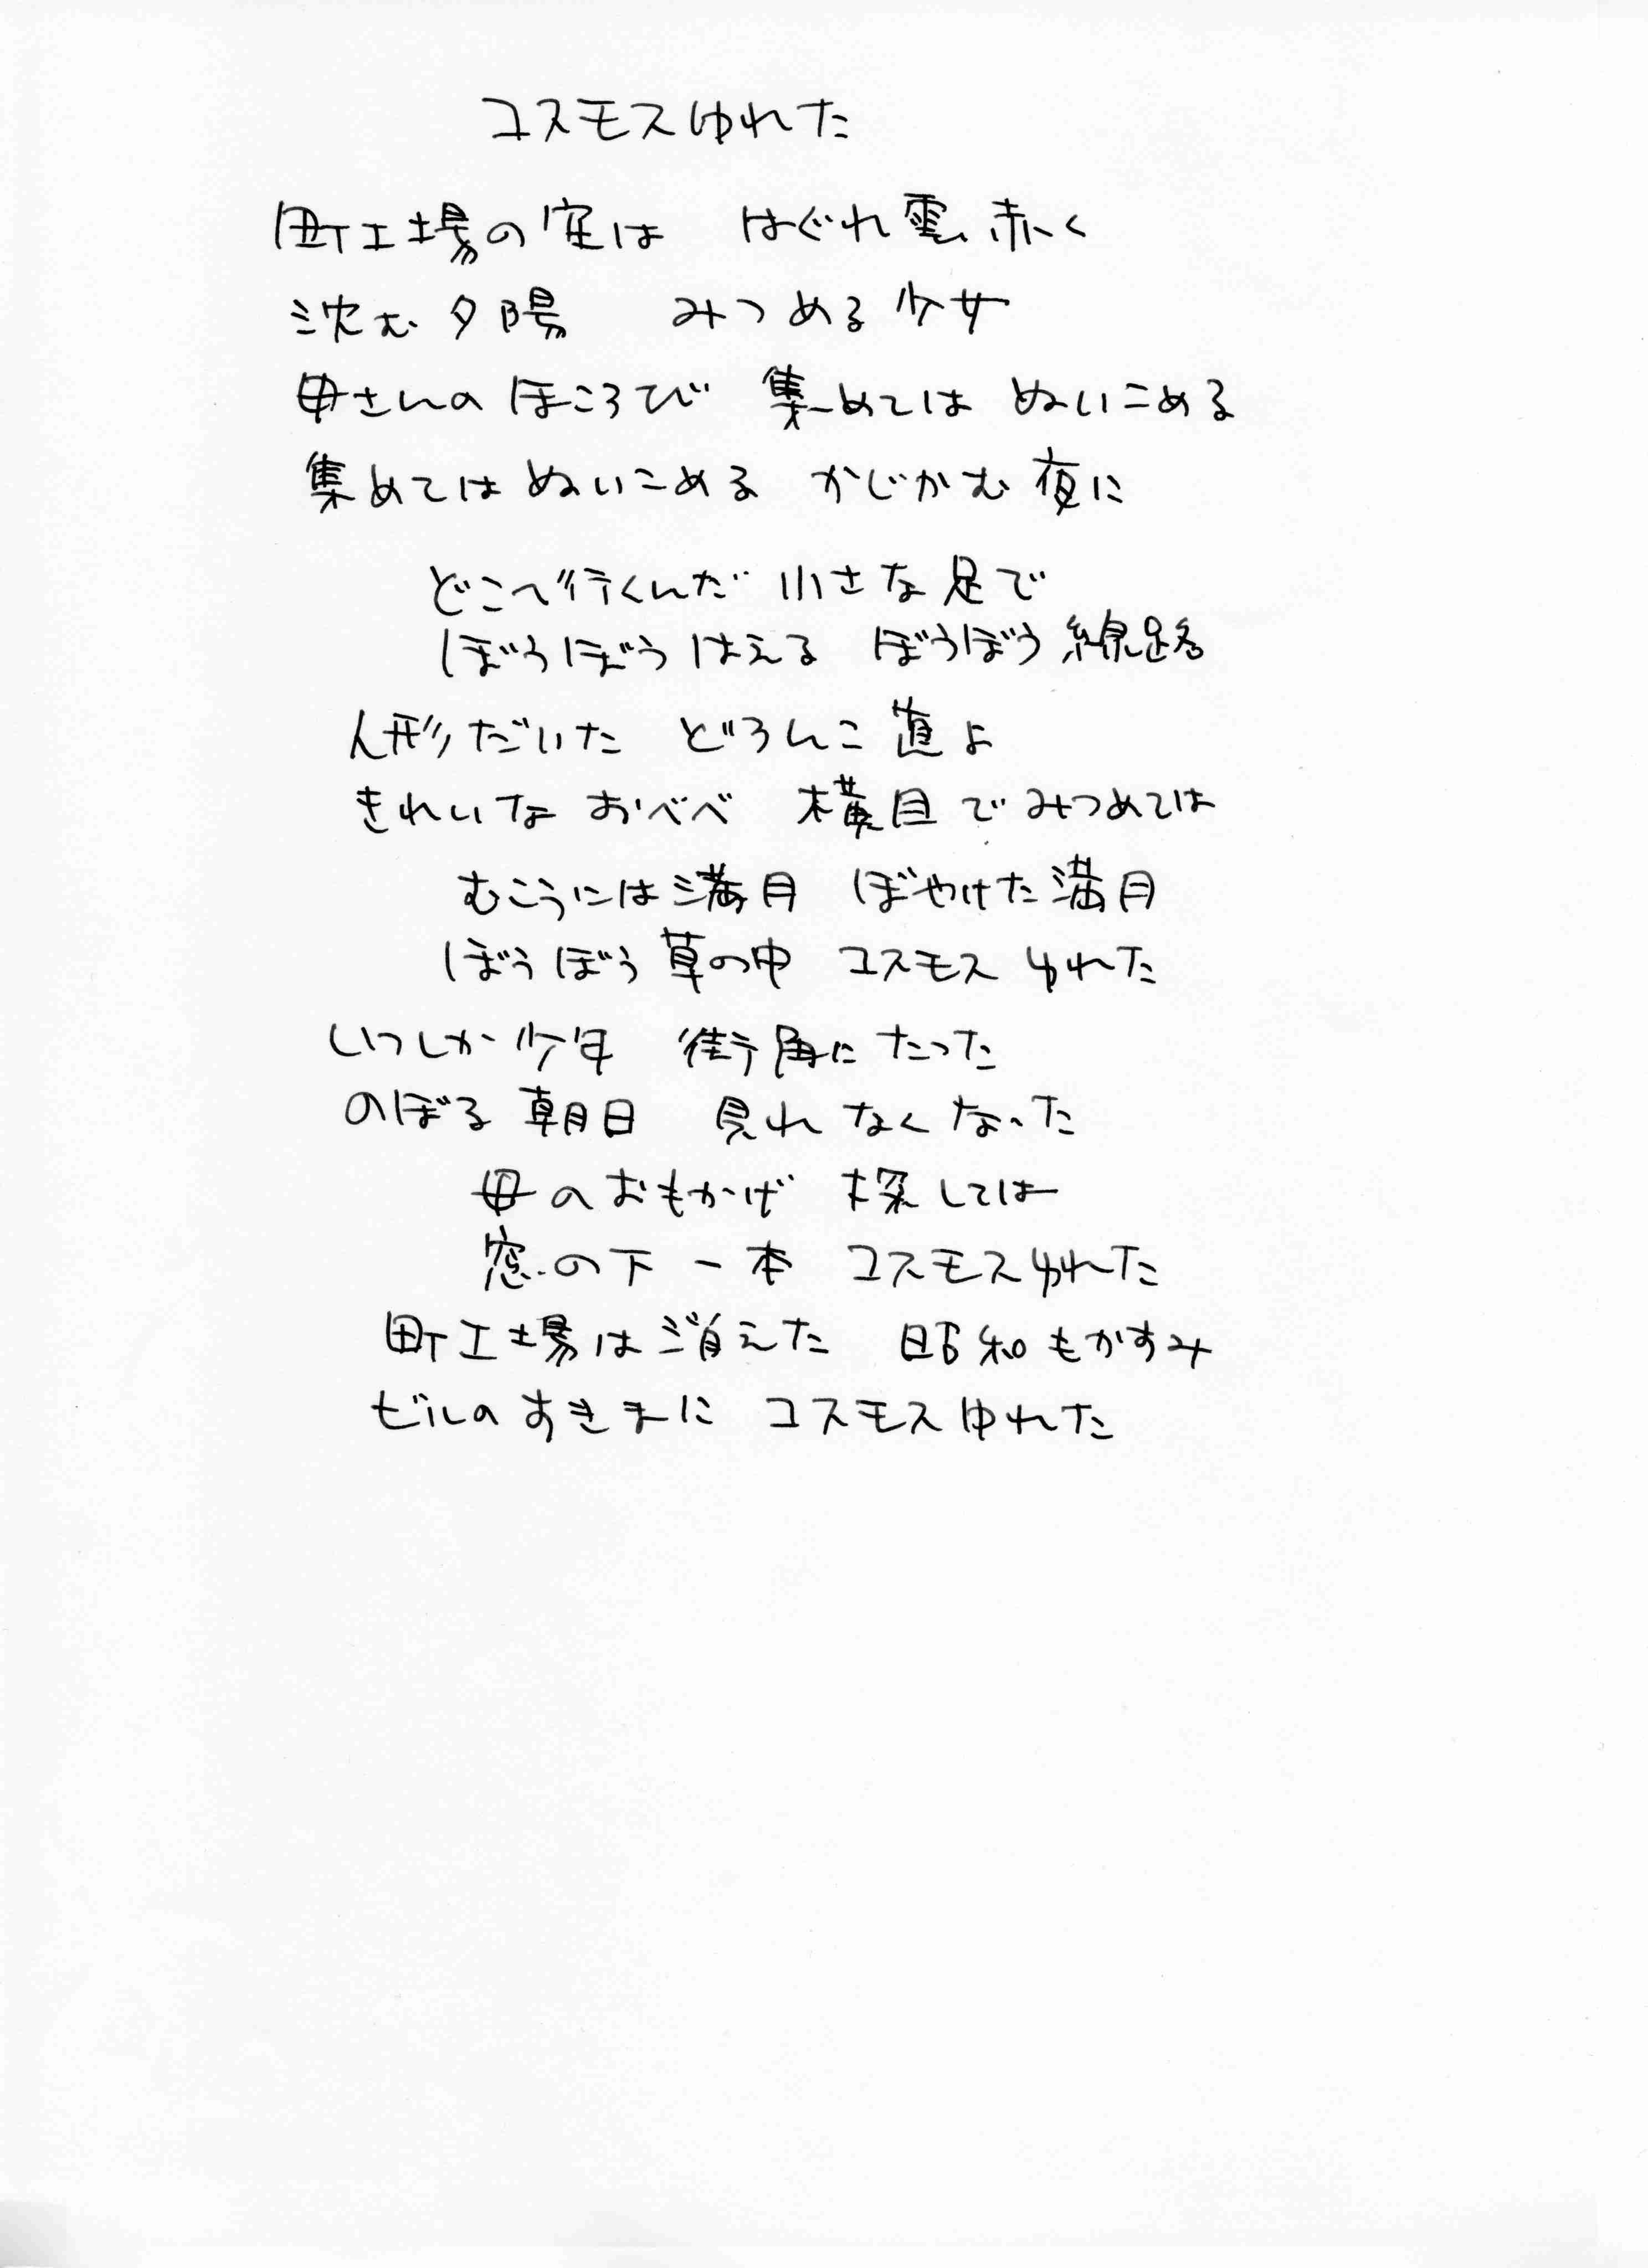 コスモスゆれた
町工場の空は　はぐれ雲赤く
沈む夕陽　みつめる少女
母さんの ほころび　集めては ぬいこめる
集めては ぬいこめる　かじかむ 夜に
どこへ行くんだ 小さな足で
ぼうぼう はえる　ぼうぼう 線路
人形だいた　どろんこ 直よ
きれいな おべべ　横目で みつめては
むこうには満月　ぼやけた満月
ぼうぼう 草の中　コスモス ゆれた
いつしか少年　街角に たった
のぼる 朝日　見れ なくなった
母のおもかげ　探しては
窓の下 一本　コスモスゆれた
町工場は 消えた　昭和もかすみ
ビルの すきまに　コスモスゆれた